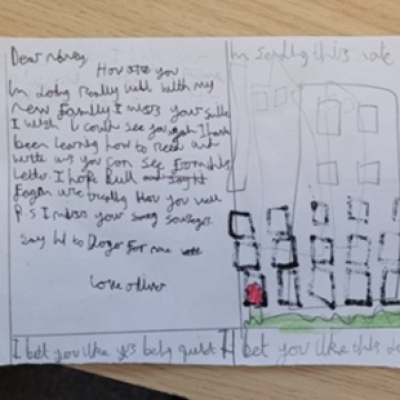 Dear nancy
How are you
Im doing really well with my
new family I miss your smile
I wish I could see you I have
been learning how to read and
write as you can see from this
letter. I hope Bull
Fagin are treating you well
P.S I miss your sausages
say hi to Doger for me
love oliver
Im sending this note
I bet you like being quiet
I bet you like this